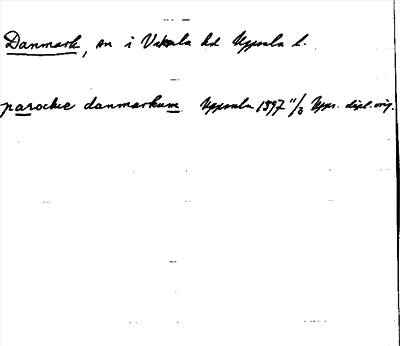 Danmark, sn i Vaksala hd Uppsala l.
parochie danmarkum Uppsala 1397 11/3 Upps. dipl. orig.